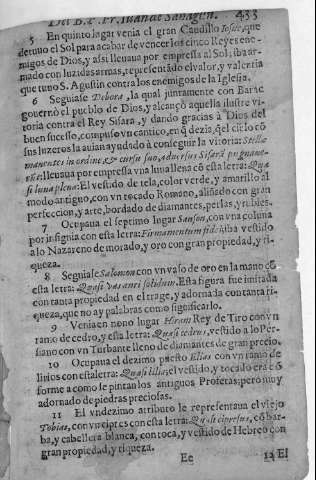 Del B. P. Fr. Iuan de Sahagun. 433
5 En quinto lugar venia el gran Caudillo Iosue, que
detuuo el Sol para acabar de vencer los cinco Reyes ene-
migos de Dios, y assi lleuaua por empressa al Sol; iba ar-
mado con luzidas armas, representãdo el valor, y valentia
que tuuo S. Agustin contra los enemigos de la Iglesia.
6 Seguiase Debora, la qual juntamente con Barac
gouernò el pueblo de Dios, y alcançò aquella ilustre vi-
toria contra el Rey Sisara, y dando gracias à Dios del
buen sucesso, compuso vn cantico, en q̃ dezia, q̃ el cielo cõ
sus luzeros la auian ayudado à conseguir la vitoria: Stellæ
manentes in ordine, & cursu suo, aduersus Sisarã pugnaue-
rũt: lleuaua por empressa vna luna llena cõ esta letra: Qua
si luna plena: El vestido de tela, color verde, y amarillo al
modo antiguo, con vn tocado Romano, aliñado con gran
perfeccion, y arte, bordado de diamantes, perlas, y rubies.
7 Ocupaua el septimo lugar Sanson, con vna coluna
por insignia con esta letra: Firmamentum fidei, iba vestido
a lo Nazareno de morado, y oro con gran propiedad, y ri-
queza.
8 Seguiase Salomon con vn vaso de oro en la mano cõ
esta letra: Quasi vas auri solidum. Esta figura fue imitada
con tanta propiedad en el trage, y adornada con tanta ri-
queza, que no ay palabras como significarlo.
9 Venia en nono lugar Hiram Rey de Tiro con vn
ramo de cedro, y esta letra: Quasi cedrus, vestido a lo Per-
siano con vn Turbante lleno de diamantes de gran precio.
10 Ocupaua el dezimo puesto Elias con vn ramo de
lirios con esta letra: Quasi lilia; el vestido, y tocado era cõ
forme a como le pintan los antiguos Profetas; pero muy
adornado de piedras preciosas.
11 El vndezimo atributo le representaua el viejo
Tobias, con vn cipres con esta letra: Quasi cipressus, cõ bar-
ba, y cabellera blanca, con toca, y vestido de Hebreo con
gran propiedad, y riqueza.
Ee 12 El